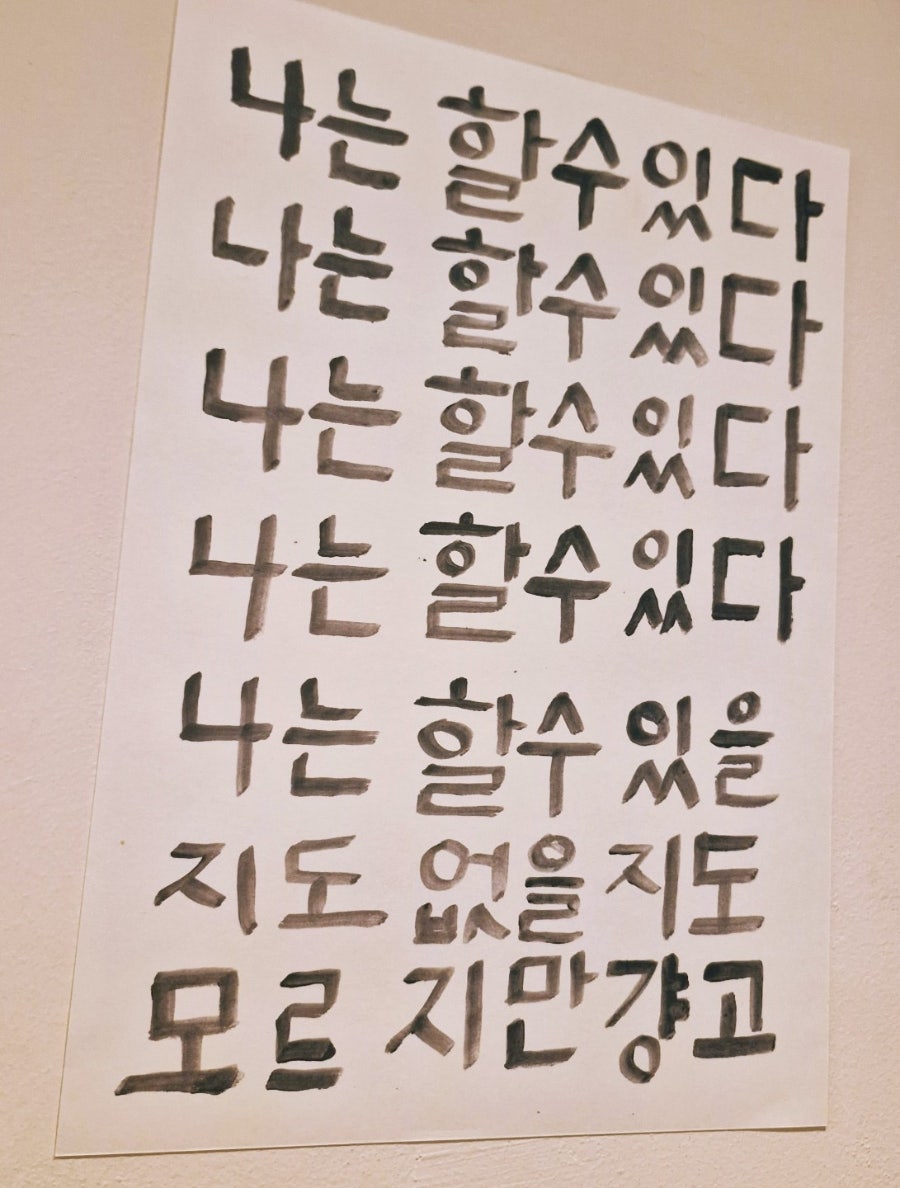 나는 할수있다
나는 할수있다
나는 할수있다
나는 할수있다
나는 할수 있을
지도 없을지도
모르지만걍고